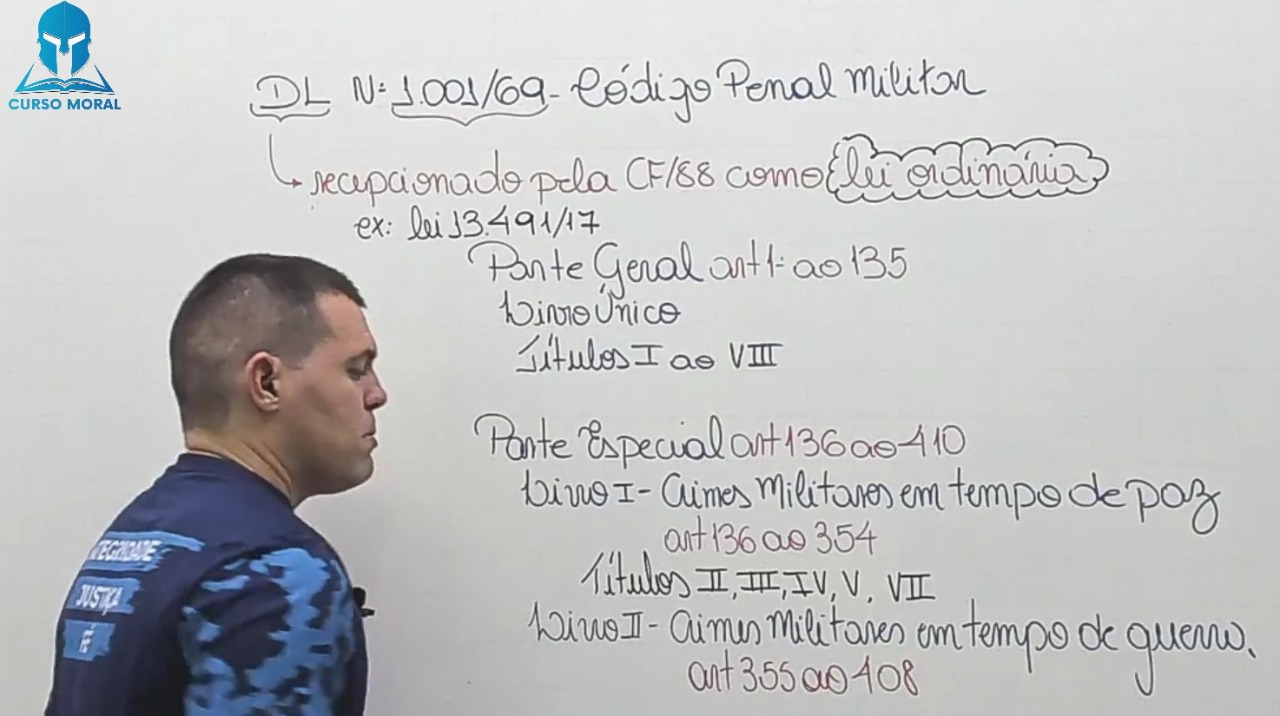 CURSO MORAL
DL Nº 1.001/69 - Código Penal Militar
recepcionado pela CF/88 como lei ordinária
ex: lei 13.491/17
Parte Geral art 1º ao 135
Livro Único
Títulos I ao VIII
Parte Especial art 136 ao 410
Livro I - Crimes Militares em tempo de paz
art 136 ao 354
Títulos II, III, IV, V, VII
Livro II - Crimes Militares em tempo de guerra.
art 355 ao 408
JUSTIÇA
FÉ